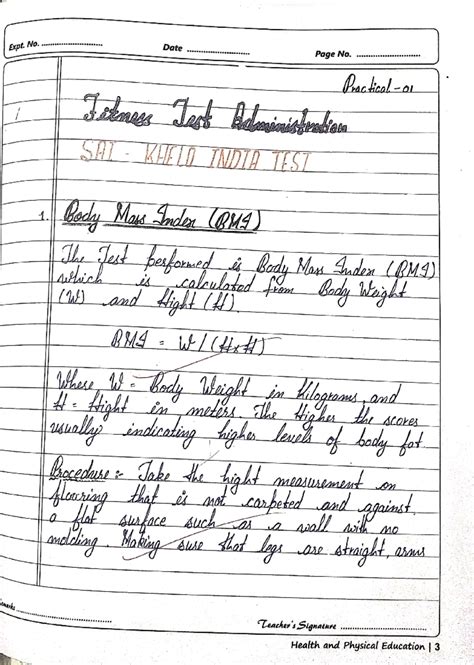 Expt. No. ..................
Date ..................
Page No. ..................
Practical-01
Fitness Test Administration
SAI - KHELO INDIA TEST
1. Body Mass Index (BMI)
The Test performed is Body Mass Index (BMI)
which is calculated from Body Weight
(W) and Hight (H).
BMI = W/(HxH)
Where W = Body Weight in Kilograms, and
H = Hight in meters. The Higher the scores
usually indicating higher levels of body fat.
Procedure :- Take the hight measurement on
flooring that is not carpeted and against
a flat surface such as a wall with no
molding. Making sure that legs are straight, arms
Teacher's Signature ..................
Health and Physical Education | 3